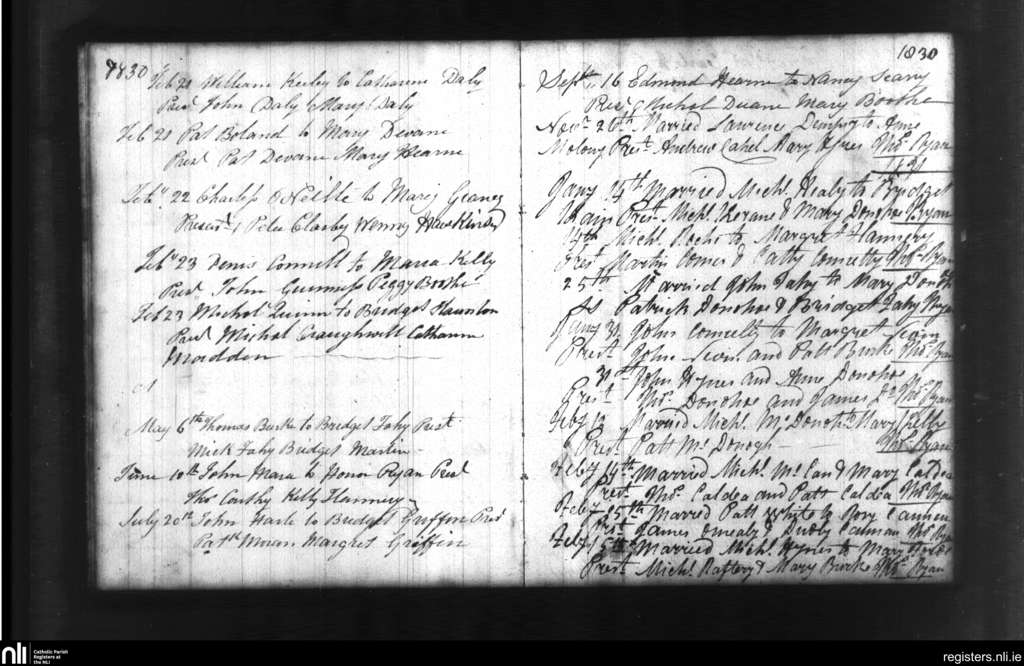 1830
Feb 21 William Keeley to Catharine Daly
Prest John Daly & Mary Daly
Feb 21 Pat Boland to Mary Devane
Prest Pat Devane Mary Hearne
Feby 22 Charless O Neille to Mary Geaney
Present Peter Clasby Henry Hawkins
Feby 23 Denis Connell to Maria Kelly
Prest John Gunniss Peggy Burke
Feb 23 Michol Quinn to Bridget
Prest Michol Craughwell Catharine
Madden
May 6th Thomas Burke to Bridget Fahy Prest
Mick Fahy Bridget Martin
June 10th John Mara to Honor Ryan Prest
Thos Carthy Kelly Flannery
July 20th John to Bridget Griffin Prest
Patk Moran Margret Griffin
1830
Septr 16 Edmond Hearne to Nancy Scary
Prest Michol Duane Mary Boorke
Novr 26th Married Lawrence Dempsy to Anne
Molony Prest Andrew Cahel Mary Hynes Thos Ryan
1831
Jany 14th Married Michl Healy to Bridget
Prest Michl & Mary Donohoe Ryan
14th Michl Roche to Margret Flannery
Prest Martin Comer & Catty Connelly Thos Ryan
25th Married John Fahy to Mary Donohoe
Patrick Donohoe & Bridget Fahy
Jany 31 John Connelly to Margret
Prest John and Patt Burke Thos Ryan
31st John Hynes and Anne Donohoe
Prest Thos Donohoe and James Do Thos Ryan
Feby 13 Married Michl McDonoh to Mary Kelly
Prest Patt McDonogh Thos Ryan
Feby 14th Married Michl and Mary Caldea
Prest Thos Caldea and Patt Caldea Thos Ryan
Feby 15th Married Patt White to Nory Cannen
Prest James & Calman Thos Ryan
Feby 15th Married Michl Hynes to Mary Burke
Prest Michl Raftery & Mary Burke Thos Ryan
nli
Catholic Parish
Registers at
the NLI
registers.nli.ie